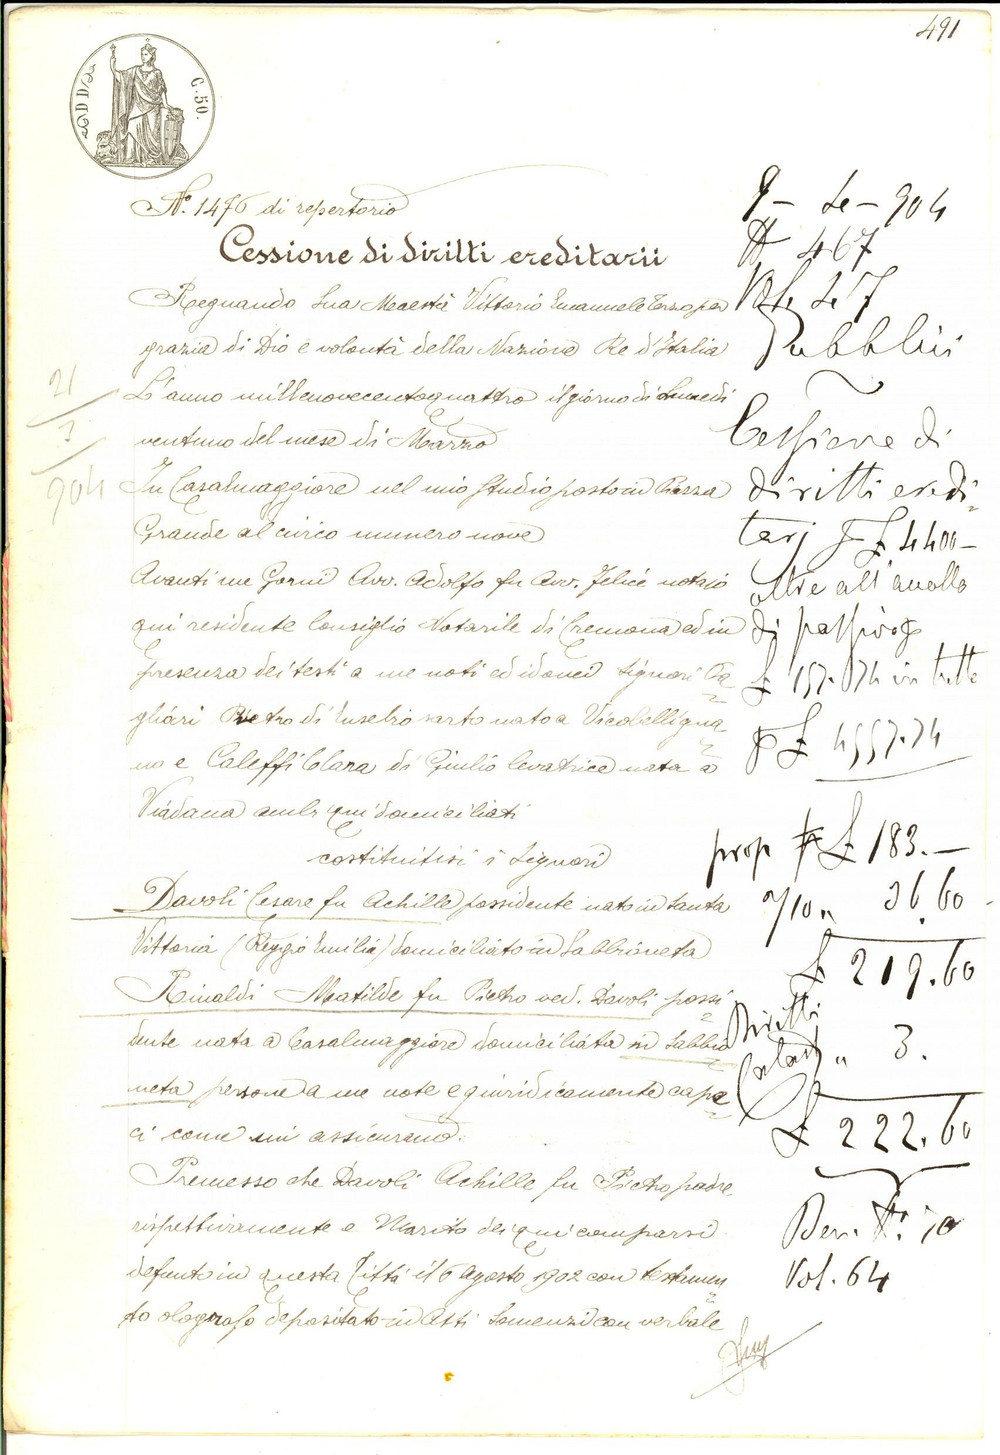 491
DDD
C. 50.
N.° 1476 di repertorio
Cessione di diritti ereditarii
Regnando Sua Maestà Vittorio Emanuele Terzo per
grazia di Dio e volontà della Nazione Re d'Italia
L'anno millenovecentoquattro il giorno di Lunedi
ventuno del mese di Marzo
In Casalmaggiore nel mio studio posto in Piazza
Grande al civico numero nove
Avanti me Gorni Avv. Adolfo fu Avv. Felice notaio
qui residente Consiglio Notarile di Cremona ed in
presenza dei testi a me noti ed idonei Signori Ca=
gliari Pietro di Eusebio sarto nato a Vicobelligna=
no e Caleffi Clara di Giulio levatrice nata a
Viadana ambi qui domiciliati
costituitisi i Signori
Davoli Cesare fu Achille possidente nato in Santa
Vittoria (Reggio Emilia) domiciliato in Sabbioneta
Rinaldi Matilde fu Pietro ved. Davoli possi=
dente nata a Casalmaggiore domiciliata in Sabbio=
neta persone a me note e giuridicamente capa=
ci come mi assicurano.
Premesso che Davoli Achille fu Pietro padre
rispettivamente e Marito dei qui comparsi
defunto in questa Città il 6 Agosto 1902 con testamen=
to olografo depositato in Atti Somenzi con verbale
21
/
3
/
904
9 - 4e - 904
N 467
Vol. 47
Pubblici
Cessione di
diritti eredi=
tarj p £ 4400-
oltre all'accollo
di passivo p
£ 157.74 in tutte
p £ 4557.74
prop £ 183.-
2/10 " 36.60
£ 219.60
Diritti
Catast " 3.
£ 222.60
Ben. N.° 70
Vol. 64